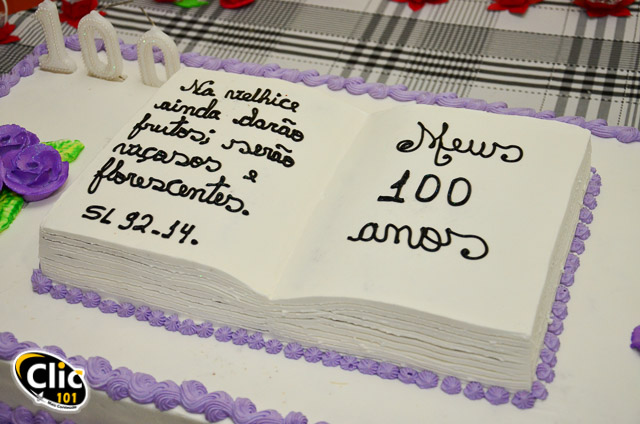 100
Na velhice
ainda darão
frutos; serão
vaçosos e
florescentes.
SL 92-14.
Meus
100
anos
Clic
101